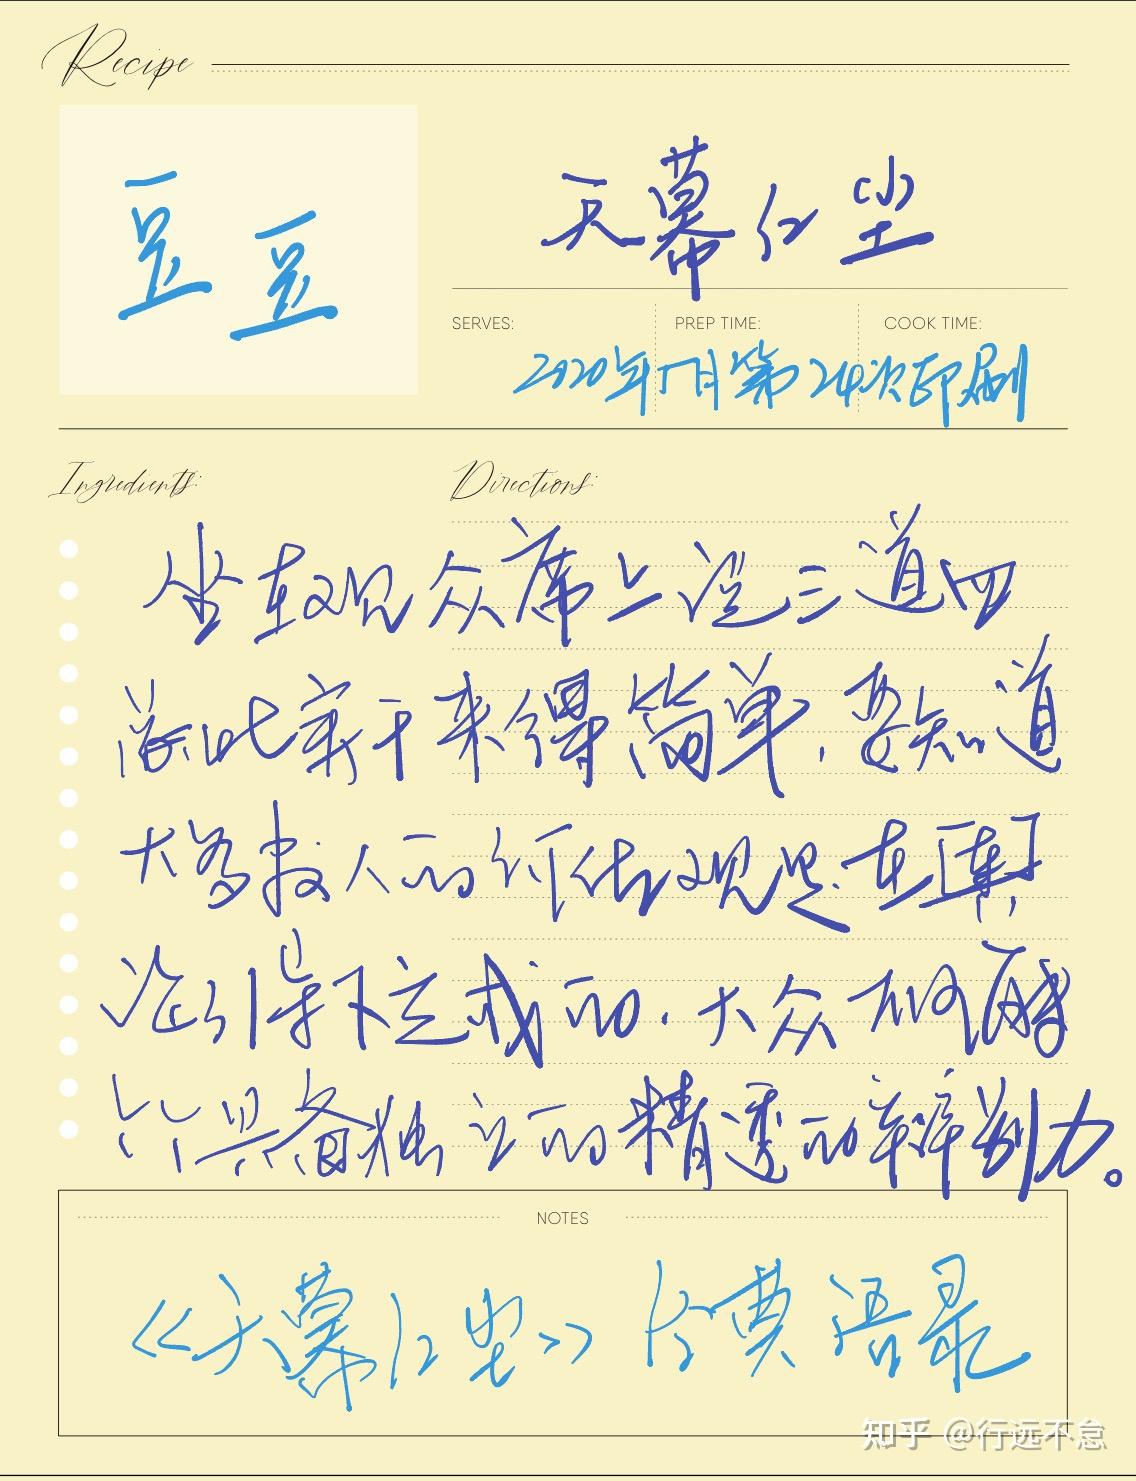 Recipe
豆豆
天幕红尘
SERVES:
PREP TIME:
COOK TIME:
2020年7月第24次印刷
Ingredients:
Directions:
坐在观众席上说三道四
总比亲干来得简单，要知道
大多数人的价值观是在舆
论引导下完成的．大众不可能
个个具备独立的精透的辨别力。
NOTES
《天幕红尘》经典语录
知乎 @行远不怠